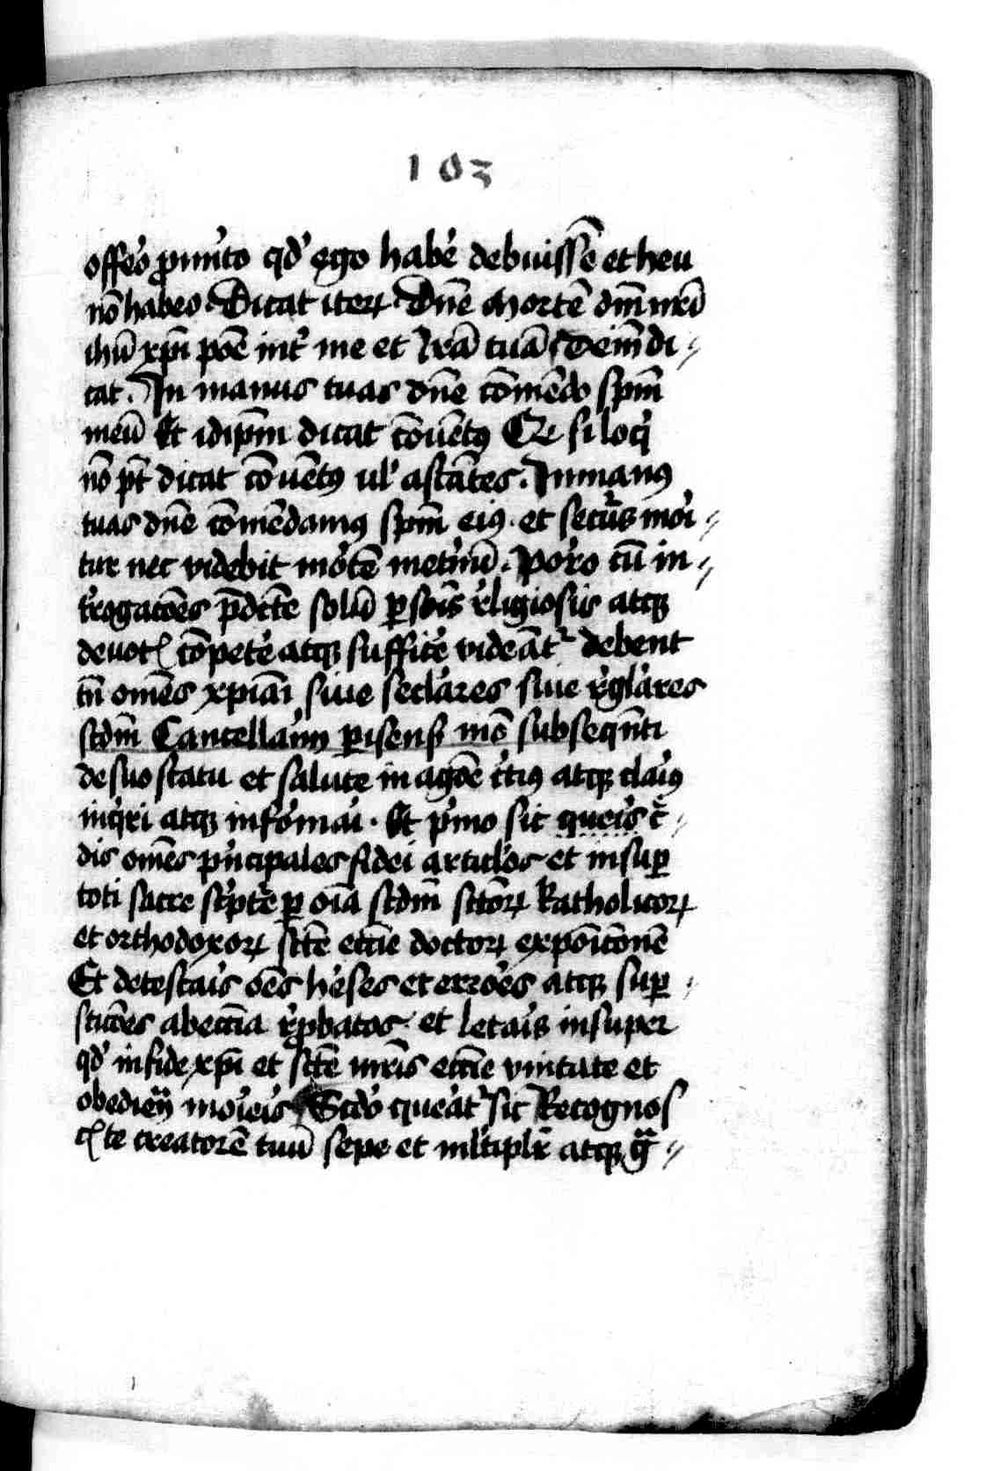 103
offero p̄ mĩto qd' ego habe' debuissẽ et heu
nõ habeo. Dicat iterꝝ. Dñe mortẽ dñi nr̃i
ihũ xp̃i põe int' me et irã tuã Deiñ di⸗
cat. In manus tuas dñe cõmẽdo sp̃m
meũ Et idip̃m dicat cõuẽtꝰ Et si loq̃
nõ pt̃ dicat cõuẽtꝰ ul' astãtes. In manꝰ
tuas dñe cõmẽdamꝰ sp̃m eiꝰ. et secur̾ mori⸗
tur nec videbit mortẽ metr̃nũ. Porro cũ in⸗
t'rogacões p̄dcẽ solũ ꝑsonis r'ligiosis atqꝫ
deuot cõpete' atqꝫ suffice' videãt' debent
tñ omẽs xp̃iãi siue seclares siue r'glares
scdm̃ Cancellariũ ꝑisens̃ mõ subseqñti
de suo statu et salute in agõe c'tiꝰ atqꝫ clariꝰ
inq̃ri atqꝫ informari. Et p'mo sic queris c̃⸗
dis omẽs p'ncipales fidei articlos et insuꝑ
toti sacre sc'pte' ꝑ oĩa scdm̃ sctõꝝ katholicoꝝ
et orthodoxoꝝ scte eccĩe doctoꝝ expõicõnẽ
Et detestaris oẽs he'ses et errores atqꝫ suꝑ⸗
sticões ab eccĩa r'ꝓbatas. et letaris insuper
qd' in fide xp̃i et scte mr̃is eccĩe vnitate et
obedieñ morieris Scdo querat' sic Recognos
cis te creatorẽ tuũ sepe et mltiplr̃ atqꝫ gͣ⸗